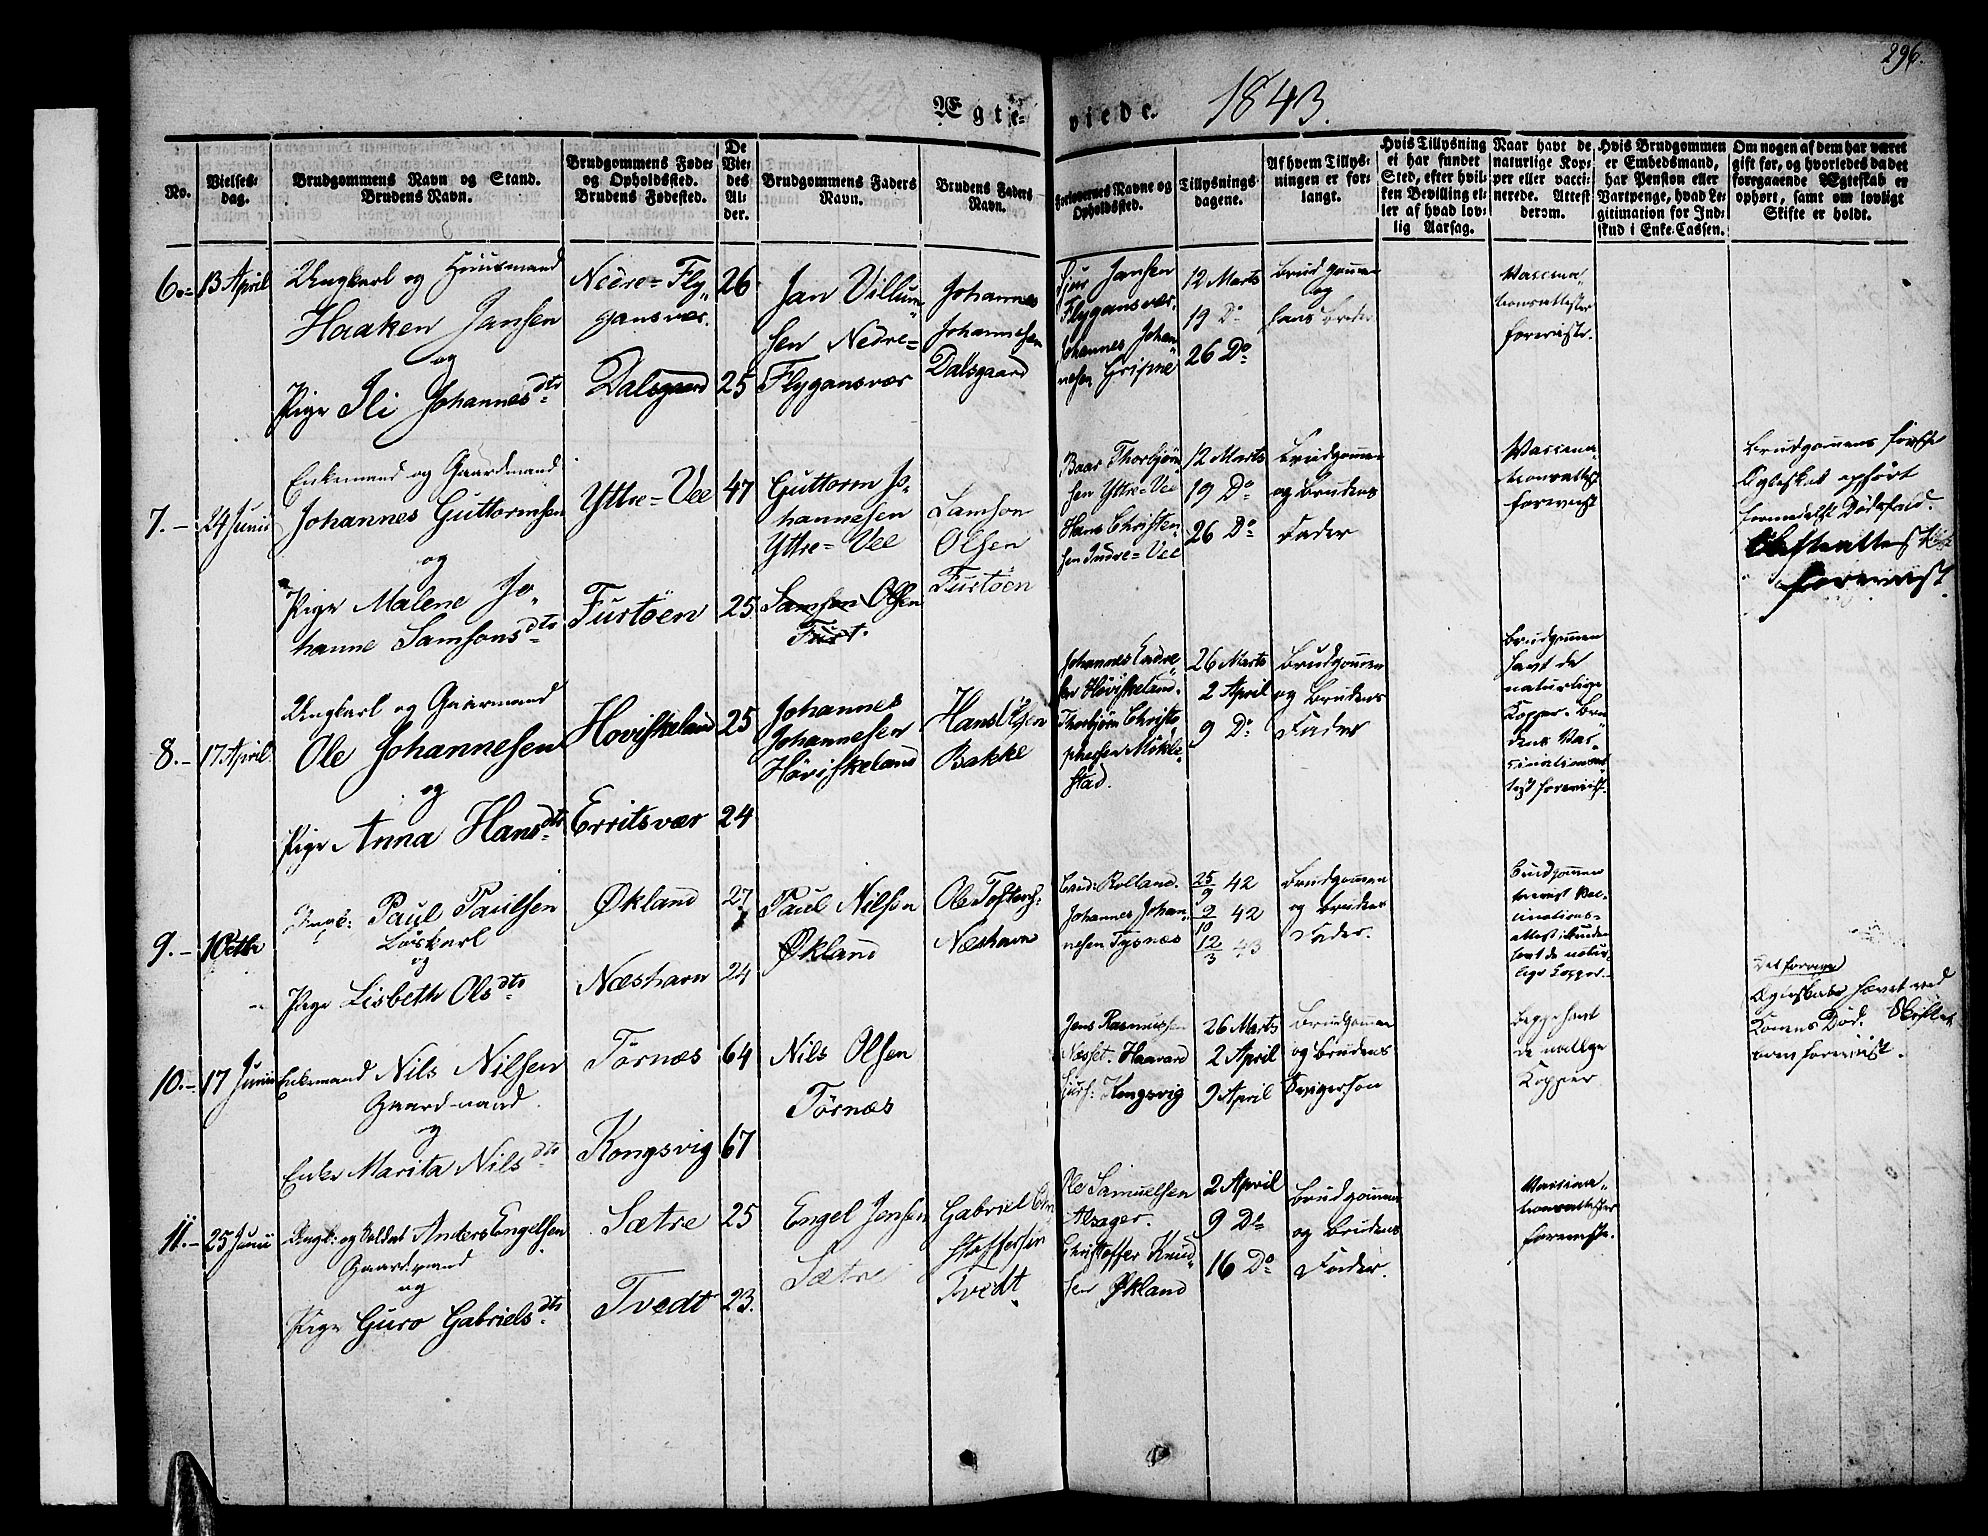 296.
Ægte-
viede.
1843.
No.
Vielses-
dag.
Brudgommens Navn og Stand.
Brudens Navn.
Brudgommens Føde-
og Opholdssted.
Brudens Fødested.
De
Vie-
des
Al-
der.
Brudgommens Faders
Navn.
Brudens Faders
Navn.
Forlovernes Navne og
Opholdssted.
Tillysnings-
dagene.
Af hvem Tillys-
ningen er for-
langt.
Hvis Tillysning
ei har fundet
Sted, efter hvil-
ken Bevilling el-
ler af hvad lov-
lig Aarsag.
Naar havt de
naturlige Kop-
per eller vacci-
nerede. Attest
derom.
Hvis Brudgommen
er Embedsmand,
har Pension eller
Vartpenge, hvad Le-
gitimation for Ind-
skud i Enke-Cassen.
Om nogen af dem har været
gift før, og hvorledes da det
foregaaende Ægteskab er
ophørt, samt om lovligt
Skifte er holdt.
6.-
13 April
Ungkarl og Huusmand
Haaken Jansen
og
Pige Ili Johannesdtr
Nedre-Fly-
gansvær.
Dalsgaard
26
25
Jan Villum-
sen Nedre-
Flygansvær
Johannes
Johannesen
Dalsgaard
Sjur Jansen
Flygansvær
Johannes Johan-
nesen
12 Marts
19 Do
26 Do
Brudgommen
og
hans Broder
Vaccina-
tionsattester
foreviste.
7.-
24 Junii
Enkemand og Gaardmand
Johannes Guttormsen
og
Pige Malene Jo-
hanne Samsonsdtr
Yttre-Vee
Furtöen
47
25
Guttorm Jo-
hannesen
Yttre-Vee
Samson Olsen
Furt.
Samson
Olsen
Furtöen
Baar Thorbjörn-
sen Yttre-Vee
Hans Christen-
sen Indre-Vee
12 Marts
19 Do
26 Do
Brudgommen
og Brudens
Fader
Vaccina-
tionsattest
forevist
Brudgommens første
Ægteskab ophørt
formedelst Dødsfald.
forevist.
8.-
17 April
Ungkarl og Gaarmand
Ole Johannesen
og
Pige Anna Hansdtr
Hoviskeland
Erritsvær
25
24
Johannes
Johannesen
Höviskeland
Hans Olsen
Bakke
Johannes Endre-
sen Höviskeland.
Thorbjörn Christo-
phersen Mökle-
stad.
26 Marts
2 April
9 Do
Brudgommen
og Brudens
Fader
Brudgommen
havt de
naturlige
Kopper. Bru-
dens Vac-
cinationsat-
test forevist.
9.-
1 Octbr
Ungk: Paul Paulsen
Löskarl
og
Pige Lisbeth Olsdtr
Økland
Næshavn
27
24
Paul Nilson
Økland
Næshavn
Johannes Johan-
nesen Tysnæs
25/9 42
9/10 42
12/3 43
Brudgommen
og Brudens
Fader.
Brudgommen
forevist Vac-
cinations-
attest. Bruden
havt de natur-
lige Kopper.
10.-
17 Junii
Enkemand Nils Nilsen
Gaardmand
og
Enke Marita Nilsdtr
Törnæs
Kongsvig
64
67
Nils Olsen
Törnæs
Jens Rasmussen
Næsset. Haavard
Sjurs: Kongsvig
26 Marts
2 April
9 April
Brudgommen
og Brudens
Svigerson
Begge havt
de natlige
Kopper
Det forrige
Ægteskab hævet ved
Konens Död.
11.-
25 Junii
Ungk: og Soldat Anders Engelsen
Gaardmand
og
Pige Guro Gabrielsdtr
Sætre
Tvedt
25
23.
Engel Jensen
Sætre
Gabriel
Tvedt
Ole Samuelsen
Alsager.
Christoffer Knud-
sen Økland
2 April
9 Do
16 Do
Brudgommen
og Brudens
Fader.
Vaccina-
tionsattester
foreviste.